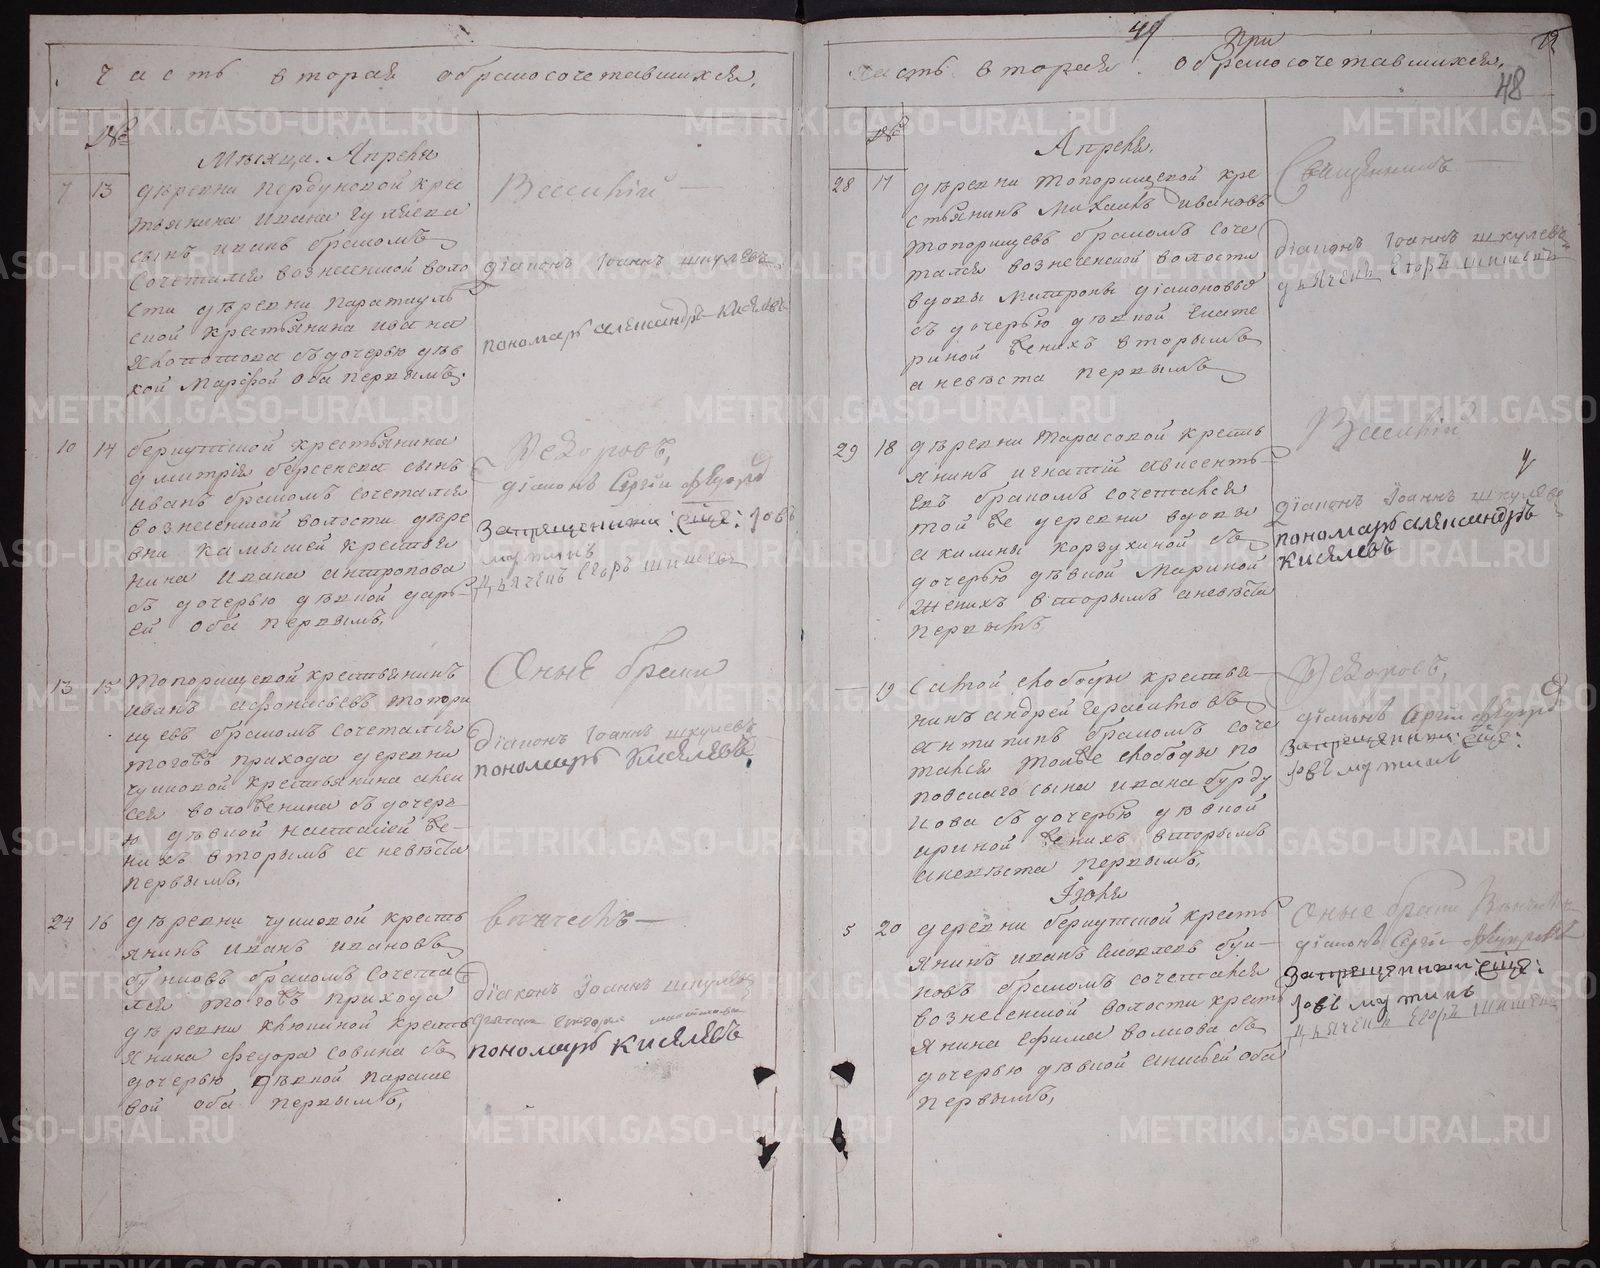 часть вторая обракосочетавшихся,
№
Мѣсяца. Апреля
7 13 дѣревни пердуновой кре
стьянина ивана гуляева
сынъ иванъ бракомъ
сочетался вознесенской воло
сти дѣревни
ской крестьянина ивана
съ дочерью дѣв
кой Марѳой оба первымъ.
Василій
діаконъ Іоаннъ шкулевъ
пономарь александръ киселевъ
10 14 бермутской крестьянина
дмитрія берсенева сынъ
иванъ бракомъ сочетался
вознесенской волости дѣре
вни камышей крестья
нина ивана антропова
съ дочерью дѣвкой дарь
ей оба первымъ,
Ѳедоровъ,
діаконъ Сергій
запрещенный
дьячекъ Егоръ шишевъ
13 15 топорищевой крестьянинъ
иванъ афонасьевъ топори
щевъ бракомъ сочетался
тогожъ прихода деревни
чумовой крестьянина алек
сея воложенина съ дочерь
ю дѣвкой наталіей же
нихъ вторымъ а невѣста
первымъ,
Оные браки
діаконъ Іоаннъ шкулевъ
пономарь Киселевъ
24 16 дѣревни чумовой кресть
янинъ иванъ ивановъ
бракомъ сочета
лся тогожъ прихода
дѣревни клюкиной кресть
янина федора савина съ
дочерью дѣвкой параске
вой оба первымъ,
венчалъ
діаконъ Іоаннъ шкулевъ
пономарь киселевъ
49 при 12
часть вторая обракосочетавшихся,
48
№
Апреля,
28 17 дѣревни топорищевой кре
стьянинъ Михаилъ ивановъ
топорищевъ бракомъ соче
тался вознесенской волости
вдовы матроны діаконовы
съ дочерью дѣвкой екате
риной женихъ вторымъ
а невѣста первымъ
Священникъ
діаконъ Іоаннъ шкулевъ
дьячекъ Егоръ шишевъ
29 18 дѣревни тарасовой кресть
янинъ игнатій авксенть
евъ бракомъ сочетался
той же деревни вдовы
акилины корзухиной съ
дочерью дѣвкой Мариной
женихъ вторымъ а невѣста
первымъ
Василій
діаконъ Іоаннъ шкулевъ
пономарь александръ
киселевъ
19 самой слободы крестья
нинъ андрей герасимовъ
антипинъ бракомъ соче
тался тойже слободы по
повскаго сына ивана бурду
кова съ дочерью дѣвкой
ириной женихъ вторымъ
а невѣста первымъ,
Ѳедоровъ,
діаконъ Сергій
запрещенный
Іюля
5 20 деревни бермутской кресть
янинъ иванъ яковлевъ
бракомъ сочетался
вознесенской волости кресть
янина ефима волкова съ
дочерью дѣвкой анисьей оба
первымъ,
Оные браки Венчалъ
діаконъ Сергій
запрещенный
дьячекъ Егоръ шишевъ